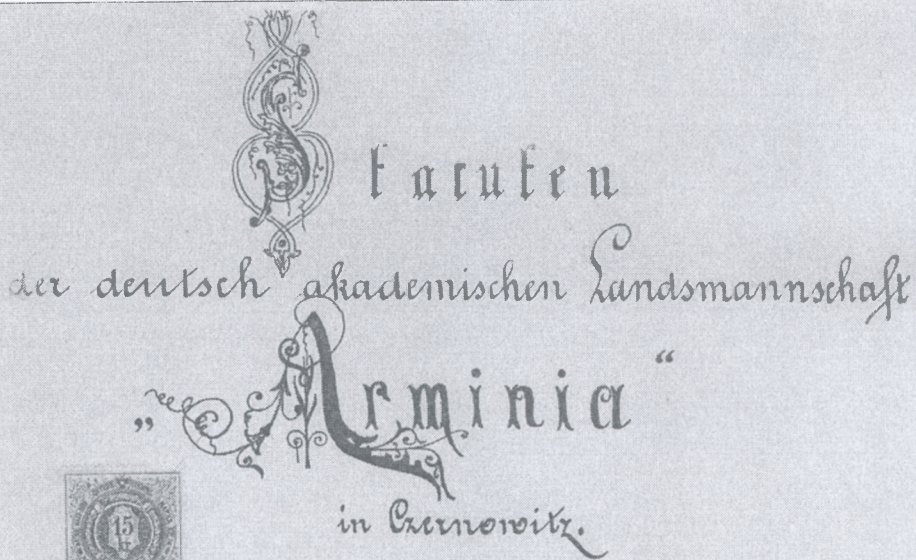 Statuten
der deutsch akademischen Landsmannschaft
„Arminia“
in Czernowitz.
15